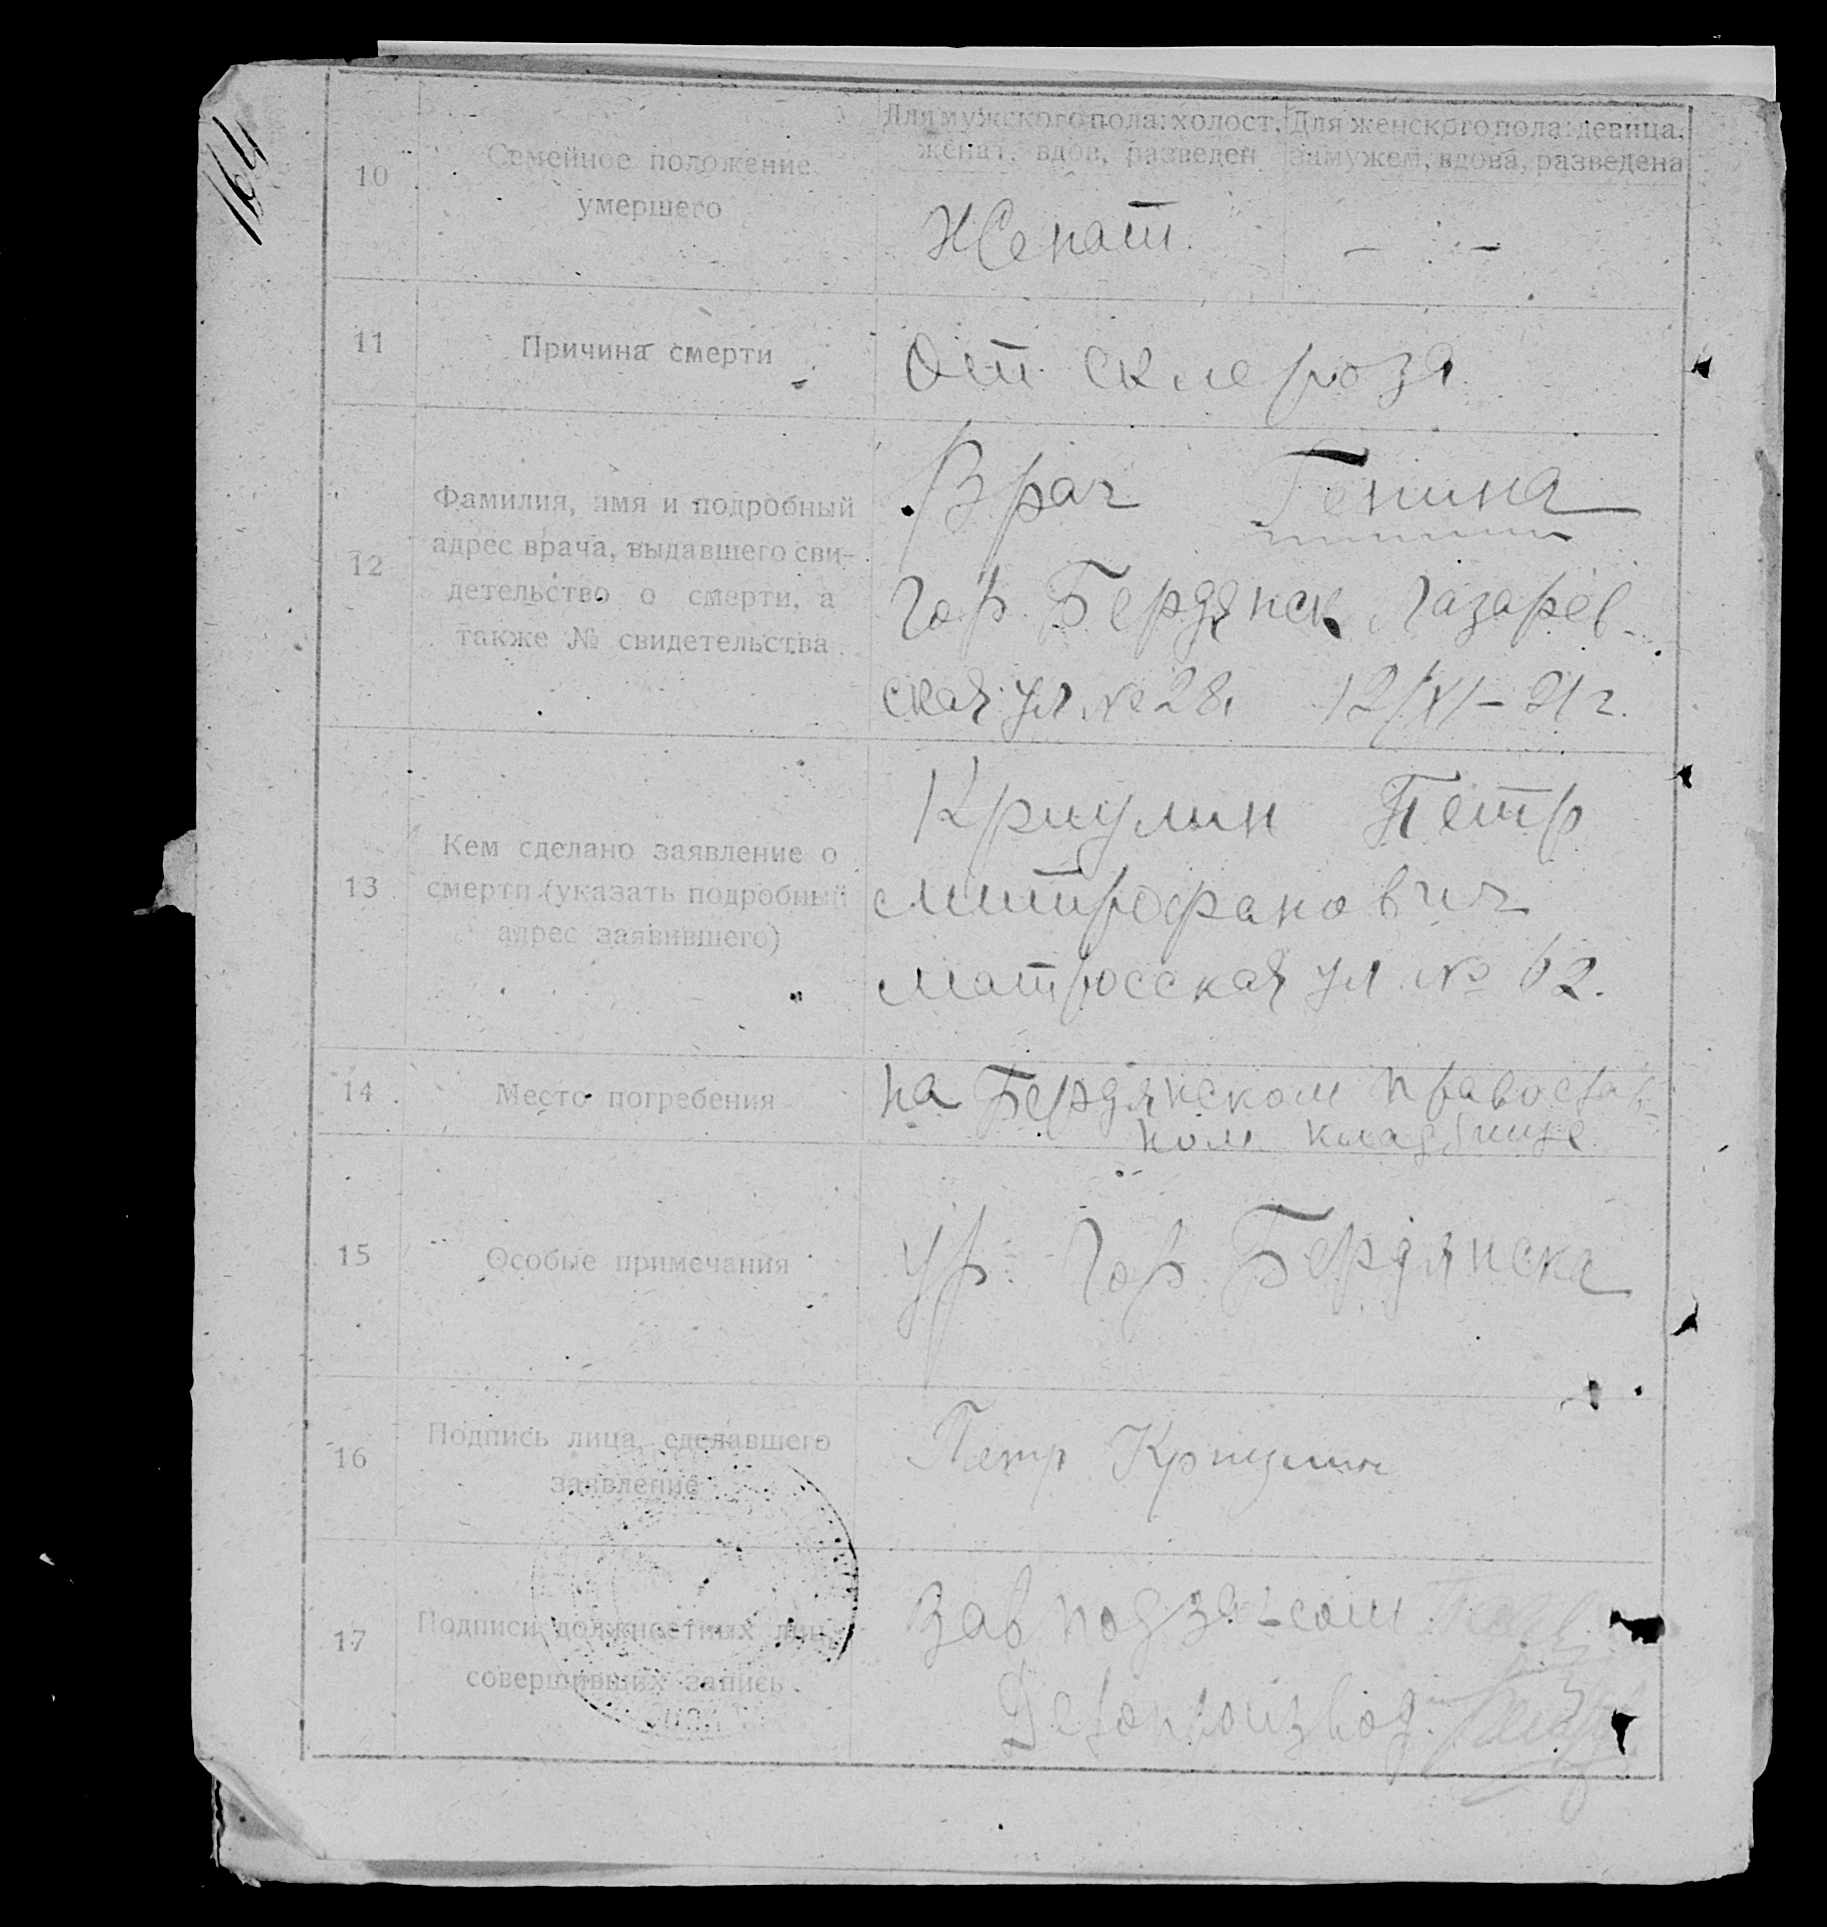 164
10
Семейное положение
умершего
Для мужского пола: холост,
женат, вдов, разведен
Для женского пола: девица,
замужем, вдова, разведена
Женат.
— —
11
Причина смерти
От склероза
12
Фамилия, имя и подробный
адрес врача, выдавшего сви-
детельство о смерти, а
также № свидетельства
Врач Генина
Гор. Бердянск Лазарев-
ская ул № 28, 12/XI – 21 г.
13
Кем сделано заявление о
смерти (указать подробный
адрес заявившего)
Криулин Петр
Митрофанович
Матросская ул. № 62.
14
Место погребения
на Бердянском православ-
ном кладбище
15
Особые примечания
Ур. Гор. Бердянска
16
Подпись лица, сделавшего
заявление
Петр Криулин
17
Подписи должностных лиц,
совершивших запись
Зав подзагсом
Делопроизвод.